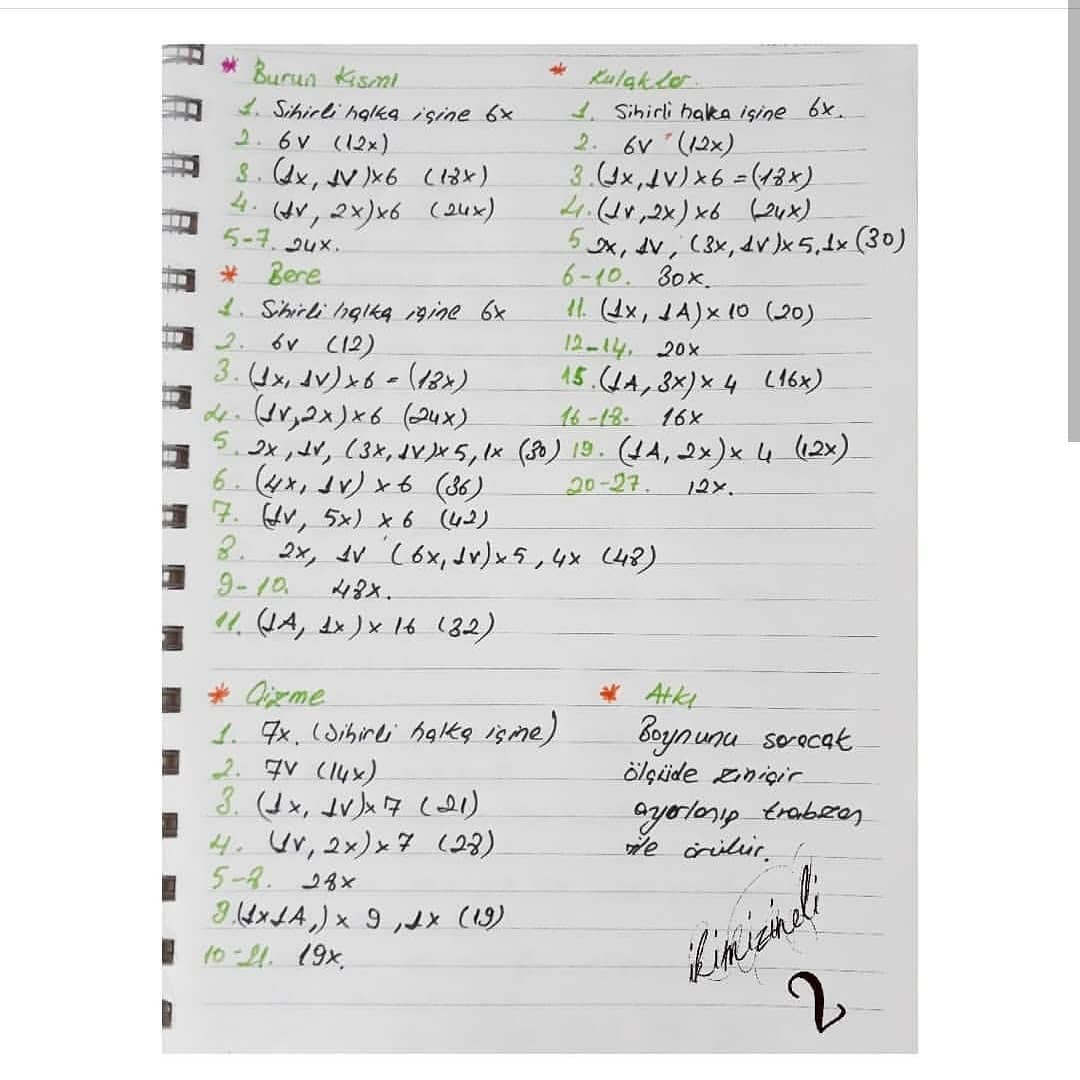 * Burun Kısmı
1. Sihirli halka içine 6x
2. 6V (12x)
3. (1x, 1V)x6 (18x)
4. (1V, 2x)x6 (24x)
5-7. 24x.
* Bere
1. Sihirli halka içine 6x
2. 6v (12)
3. (1x, 1V)x6 = (18x)
4. (1V, 2x)x6 (24x)
5. 2x, 1V, (3x, 1V)x5, 1x (30)
6. (4x, 1V) x 6 (36)
7. (1V, 5x) x 6 (42)
8. 2x, 1V (6x, 1V)x5, 4x (48)
9-10. 48x.
11. (1A, 1x) x 16 (32)
* Kulaklar
1. Sihirli halka içine 6x.
2. 6V (12x)
3. (1x, 1V) x6 = (18x)
4. (1V, 2x) x6 (24x)
5 2x, 1V, (3x, 1V)x5, 1x (30)
6-10. 30x.
11. (1x, 1A) x 10 (20)
12-14. 20x
15. (1A, 3x) x 4 (16x)
16-18. 16x
19. (1A, 2x) x 4 (12x)
20-27. 12x.
* Çizme
1. 7x. (Sihirli halka içine)
2. 7V (14x)
3. (1x, 1V)x7 (21)
4. (1V, 2x)x7 (28)
5-8. 28x
9. (1x1A,) x 9, 1x (19)
10-21. 19x.
* Atkı
Boynunu saracak
ölçüde ziniçir
ayarlanıp trabzan
ile örülür.
ikimizineli
2